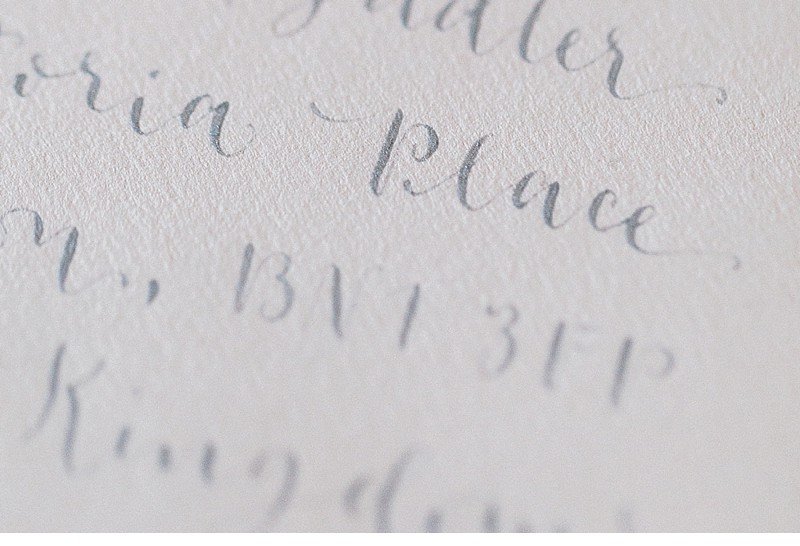 adler
oria Place
n, BN1 3FP
Kingdom